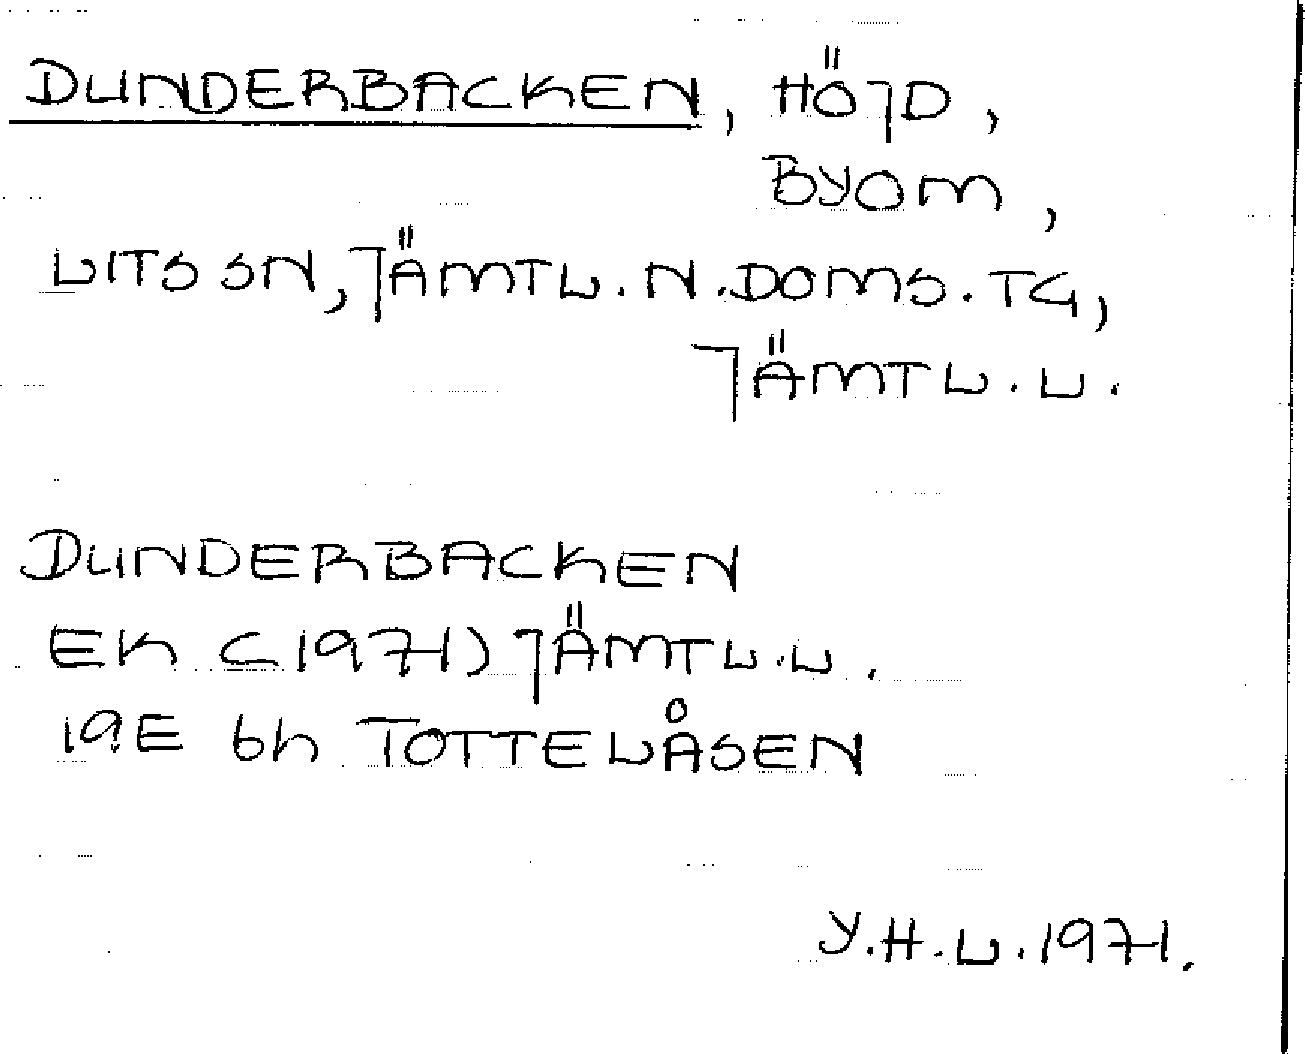 DUNDERBACKEN, HÖJD,
BYOM,
LITS SN, JÄMTL. N. DOMS. TG,
JÄMTL. L.
DUNDERBACKEN
EK (1971) JÄMTL. L.
19E 6h TOTTELÅSEN
Y.H.L. 1971.